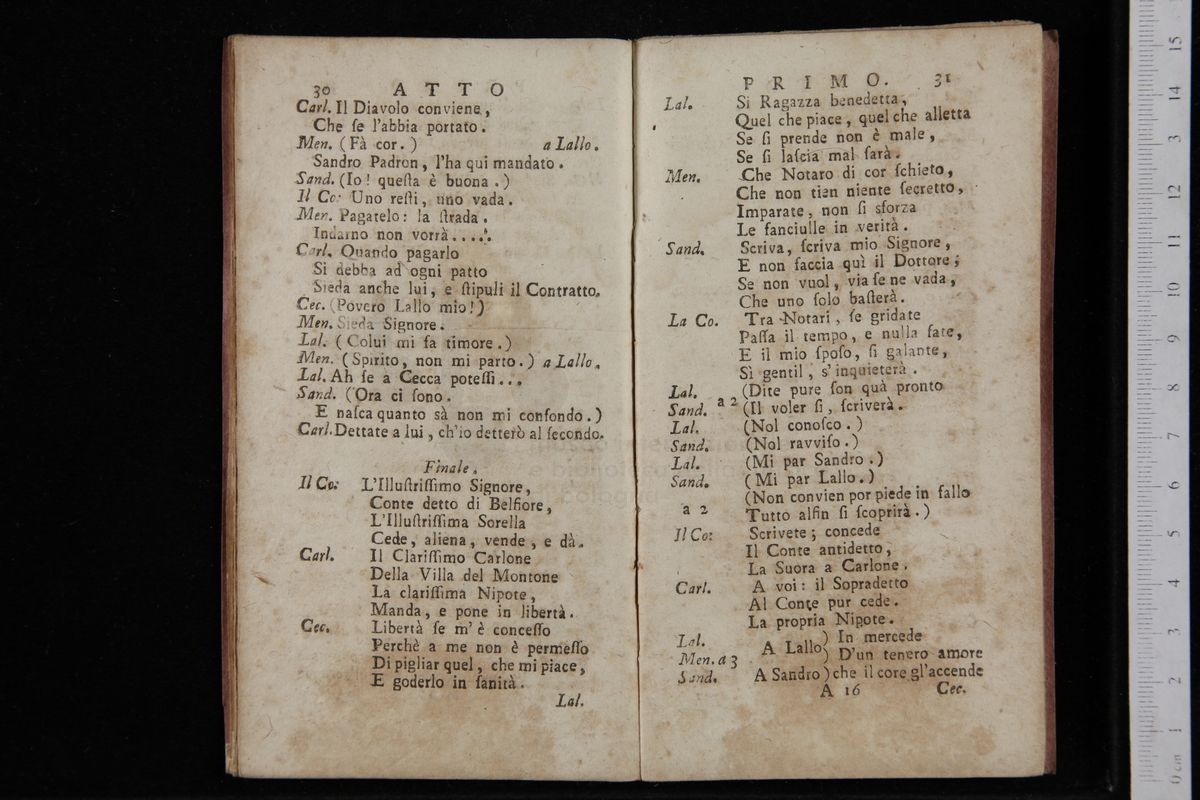 30 ATTO
Carl. Il Diavolo conviene,
Che ſe l'abbia portato.
Men. (Fà cor.) a Lallo.
Sandro Padron, l'ha qui mandato.
Sand. (Io! queſta è buona.)
Il Co: Uno reſti, uno vada.
Men. Pagatelo: la ſtrada.
Indarno non vorrà.....
Carl. Quando pagarlo
Si debba ad ogni patto
Sieda anche lui, e ſtipuli il Contratto.
Cec. (Povero Lallo mio!)
Men. Sieda Signore.
Lal. (Colui mi fa timore.)
Men. (Spirito, non mi parto.) a Lallo.
Lal. Ah ſe a Cecca poteſſi...
Sand. (Ora ci ſono.
E naſca quanto sà non mi confondo.)
Carl. Dettate a lui, ch'io detterò al ſecondo.
Finale.
Il Co: L'Illuſtriſſimo Signore,
Conte detto di Belfiore,
L'Illuſtriſſima Sorella
Cede, aliena, vende, e dà.
Carl. Il Clariſſimo Carlone
Della Villa del Montone
La clariſſima Nipote,
Manda, e pone in libertà.
Cec. Libertà ſe m'è conceſſo
Perchè a me non è permeſſo
Di pigliar quel, che mi piace,
E goderlo in ſanità.
Lal.
PRIMO. 31
Lal. Si Ragazza benedetta,
Quel che piace, quel che alletta
Se ſi prende non è male,
Se ſi laſcia mal ſarà.
Men. Che Notaro di cor ſchieto,
Che non tien niente ſecretto,
Imparate, non ſi sforza
Le fanciulle in verità.
Sand. Scriva, ſcriva mio Signore,
E non faccia quì il Dottore;
Se non vuol, via ſe ne vada,
Che uno ſolo baſterà.
La Co. Tra Notari, ſe gridate
Paſſa il tempo, e nulla fate,
E il mio ſpoſo, ſi galante,
Sì gentil, s'inquieterà.
Lal. (Dite pure ſon quà pronto
Sand. a 2 (Il voler ſi, ſcriverà.
Lal. (Nol conoſco.)
Sand. (Nol ravviſo.)
Lal. (Mi par Sandro.)
Sand. (Mi par Lallo.)
(Non convien por piede in fallo
a 2 Tutto alfin ſi ſcoprirà.)
Il Co: Scrivete; concede
Il Conte antidetto,
La Suora a Carlone.
Carl. A voi: il Sopradetto
Al Conte pur cede.
La propria Nipote.
Lal. ) In mercede
Men. a 3 A Lallo) D'un tenero amore
Sand. A Sandro) che il core gl'accende
A 16 Cec.